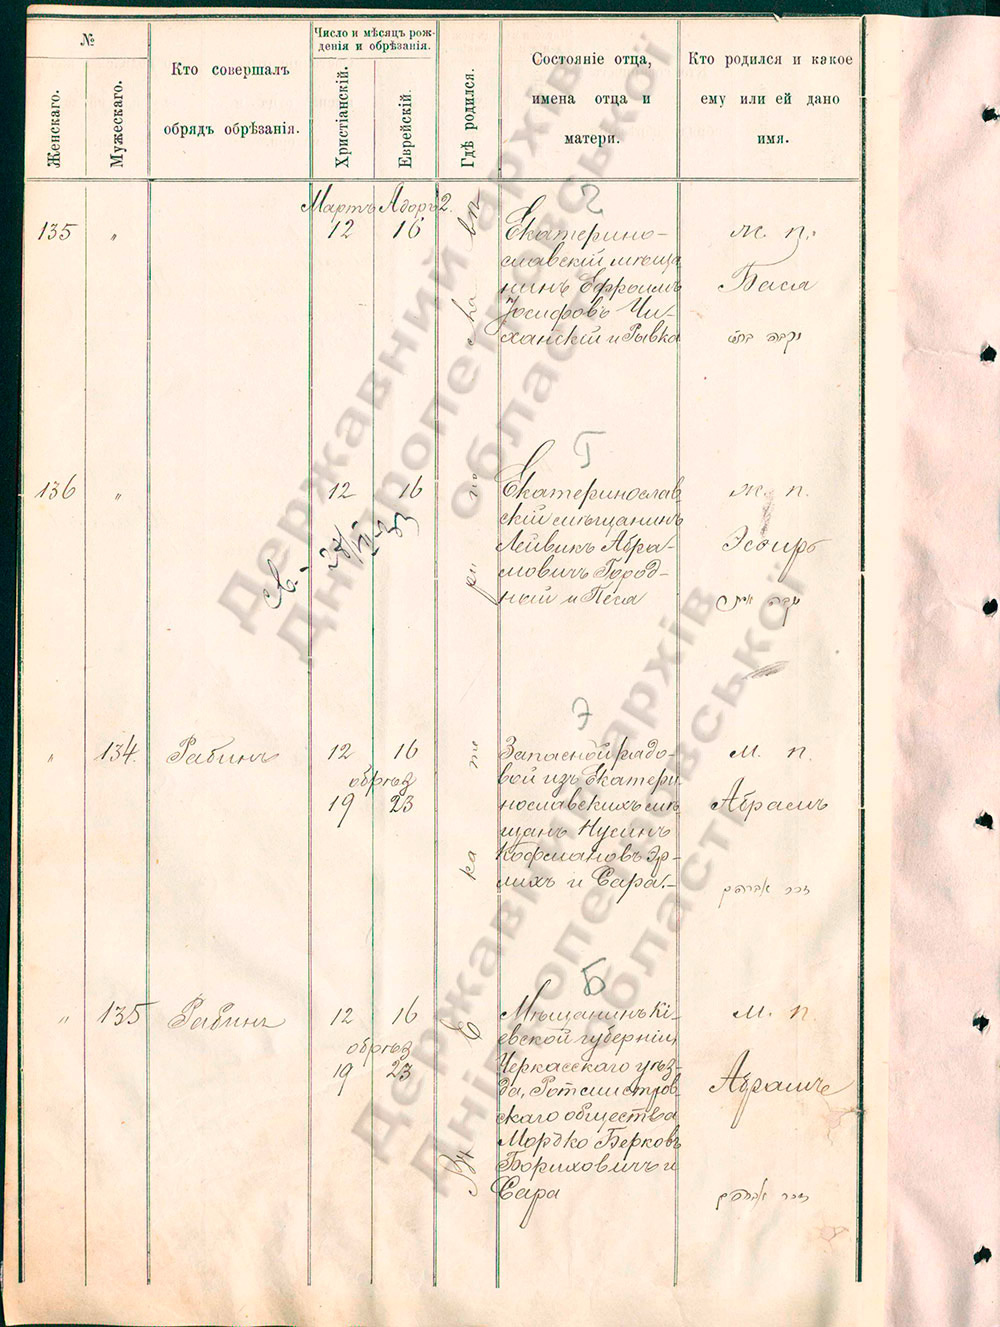 №
Женскаго.
Мужескаго.
Кто совершалъ
обрядъ обрѣзанія.
Число и мѣсяцъ рож-
денія и обрѣзанія.
Христіанскій.
Еврейскій.
Гдѣ родился.
Состояніе отца,
имена отца и
матери.
Кто родился и какое
ему или ей дано
имя.
Мартъ Адоръ 2.
135 „ 12 16
Екатерино-
славскій мѣща
нинъ Ефроимъ
Іосифовъ Чи-
ханскій и Рывка
ж. п.
Бася
נקבה
136 „ 12 16
Екатеринослав
скій мѣщанинъ
Лейвикъ Абра-
мовичъ Город-
ный и Песя
ж. п.
Эсфирь
נקבה
Г
„ 134. Рабинъ 12 16
обрѣз
19 23
Э
Запасной рядо-
вой изъ Екатери
нославскихъ мѣ
щанъ Нусинъ
Кофмановъ Эр-
лихъ и Сара.-
м. п.
Абрамъ
זכר אברהם
„ 135 Рабинъ 12 16
обрѣз
19 23
Б
Мѣщанинъ Кі-
евской губерніи,
Черкасскаго уѣз-
да, Ротмистров
скаго общества
Мордко Берковъ
Бориховичъ и
Сара
м. п.
Абрамъ
זכר אברהם
Въ Е ка те ри но сла вл
Державний архів
Дніпропетровської
області
Державний архів
Дніпропетровської
області